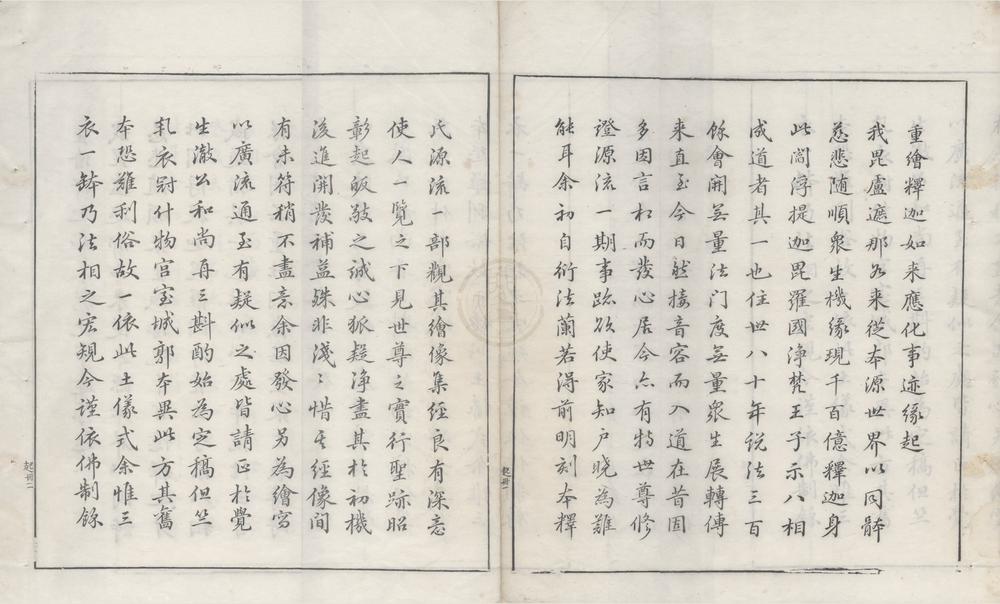 重繪釋迦如来應化事迹緣起
我毘盧遮那如来從本源世界以同體
慈悲随順衆生機緣現千百億釋迦身
此閻浮提迦毘羅國淨梵王子示八相
成道者其一也住世八十年說法三百
餘會開無量法门度無量衆生展轉傳
来直至今日就接音容而入道在昔固
多因言相而發心居今亦有特世尊修
證源流一期事跡欲使家知户曉為難
能耳余初自衍法蘭若得前明刻本釋
氏源流一部觀其繪像集經良有深意
使人一覧之下見世尊之實行聖跡昭
彰起皈敬之誠心狐疑淨盡其於初機
後進開發補益殊非淺〻惜其經像間
有未符稍不盡意余因發心另為繪寫
以廣流通至有疑似之處皆請正於覺
生澈公和尚再三斟酌始為定稿但竺
乹衣冠什物宫室城郭本與此方其舊
本恐難利俗故一依此土儀式余惟三
衣一鉢乃法相之宏規今謹依佛制餘